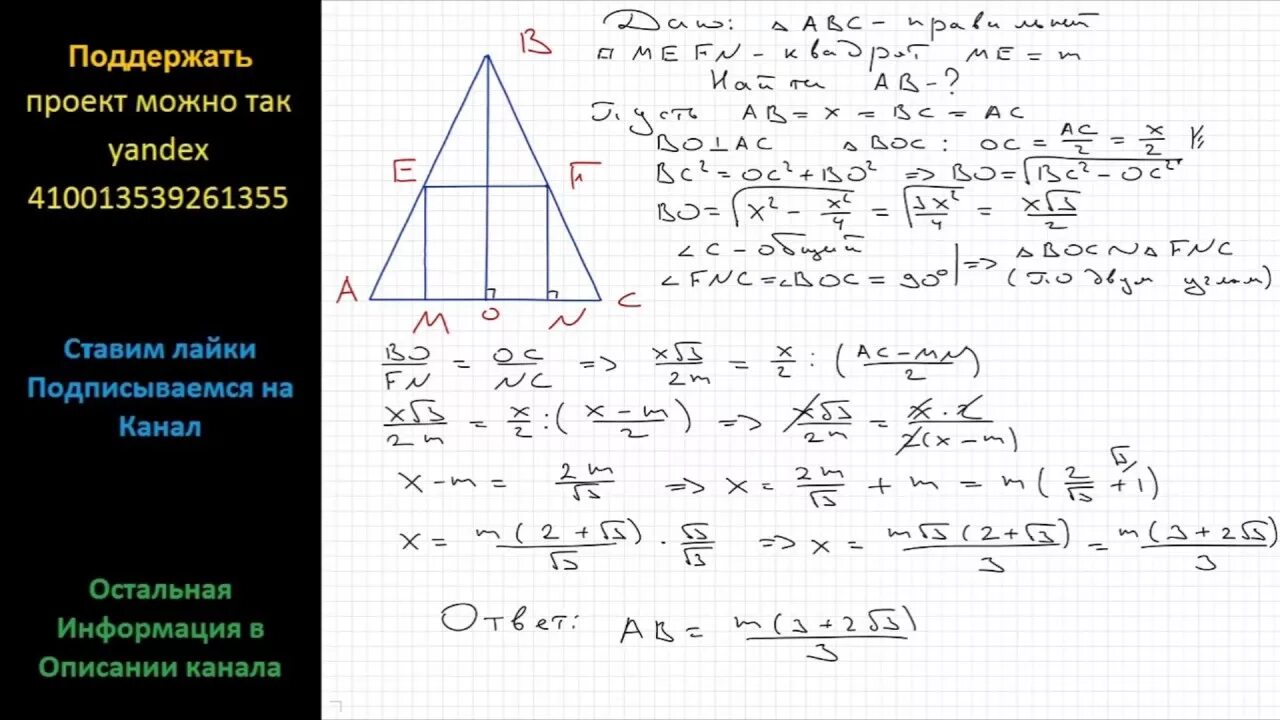 Поддержать
проект можно так
yandex
410013539261355
Ставим лайки
Подписываемся на
Канал
Остальная
Информация в
Описании канала
B
E F
A C
M O N
Дано: △ABC - правильный
□ MEFN - квадрат ME = m
Найти AB - ?
Пусть AB = x = BC = AC
BO ⊥ AC △BOC: OC = AC/2 = x/2
BC² = OC² + BO² => BO = √(BC² - OC²)
BO = √(x² - x²/4) = √(3x²/4) = x√3/2
∠C - общий
∠FNC = ∠BOC = 90° | => △BOC ~ △FNC
(По двум углам)
BO/FN = OC/NC => x√3/2m = x/2 : ((AC - MN)/2)
x√3/2m = x/2 : ((x - m)/2) => x√3/2m = x · 2/2(x - m)
x - m = 2m/√3 => x = 2m/√3 + m = m(2/√3 + 1) √3/
x = m(2 + √3)/√3 · √3/√3 => x = m√3(2 + √3)/3 = m(3 + 2√3)/3
Ответ: AB = m(3 + 2√3)/3